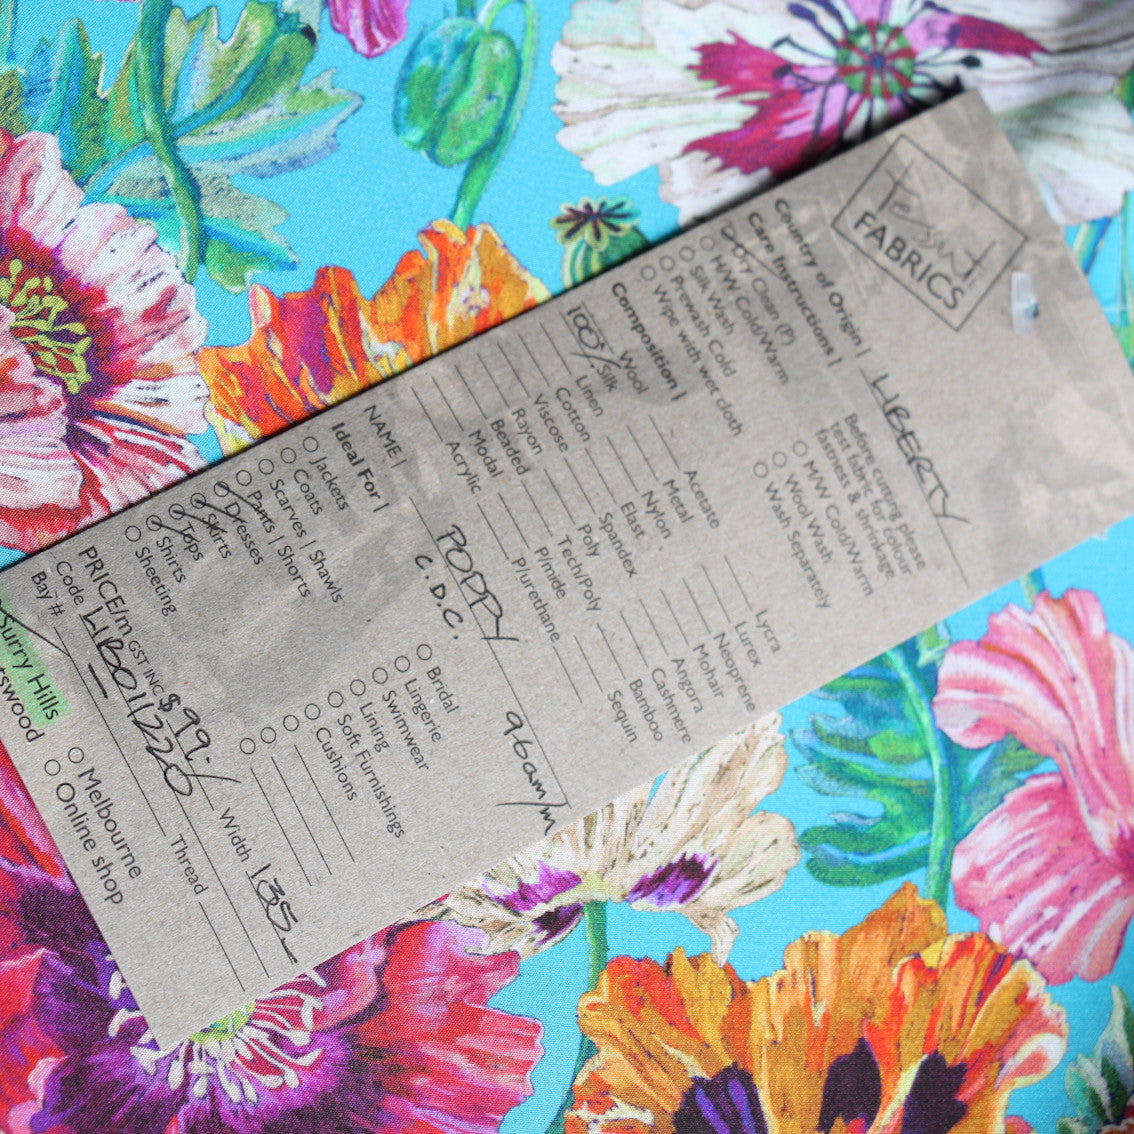 the fabric
FABRICS
Country of Origin | LIBERTY
Care Instructions |
Before cutting please
test fabric for colour
fastness & shrinkage
Dry Clean (P)
H/W Cold/Warm
M/W Cold/Warm
Silk Wash
Wool Wash
Prewash Cold
Wash Separately
Wipe with wet cloth
Composition |
Wool
Acetate
Lycra
100% Silk
Metal
Lurex
Linen
Nylon
Neoprene
Cotton
Elast
Mohair
Viscose
Spandex
Angora
Rayon
Poly
Cashmere
Beaded
Tech/Poly
Bamboo
Modal
P/mide
Sequin
Acrylic
P/urethane
NAME | POPPY 96am/m
C.D.C.
Ideal For |
Jackets
Bridal
Coats
Lingerie
Scarves | Shawls
Swimwear
Pants | Shorts
Lining
Dresses
Soft Furnishings
Skirts
Cushions
Tops
Shirts
Sheeting
PRICE/m GST INC $99. Width 135
Code LIB011220
Bay # Thread
Surry Hills
Melbourne
Online shop